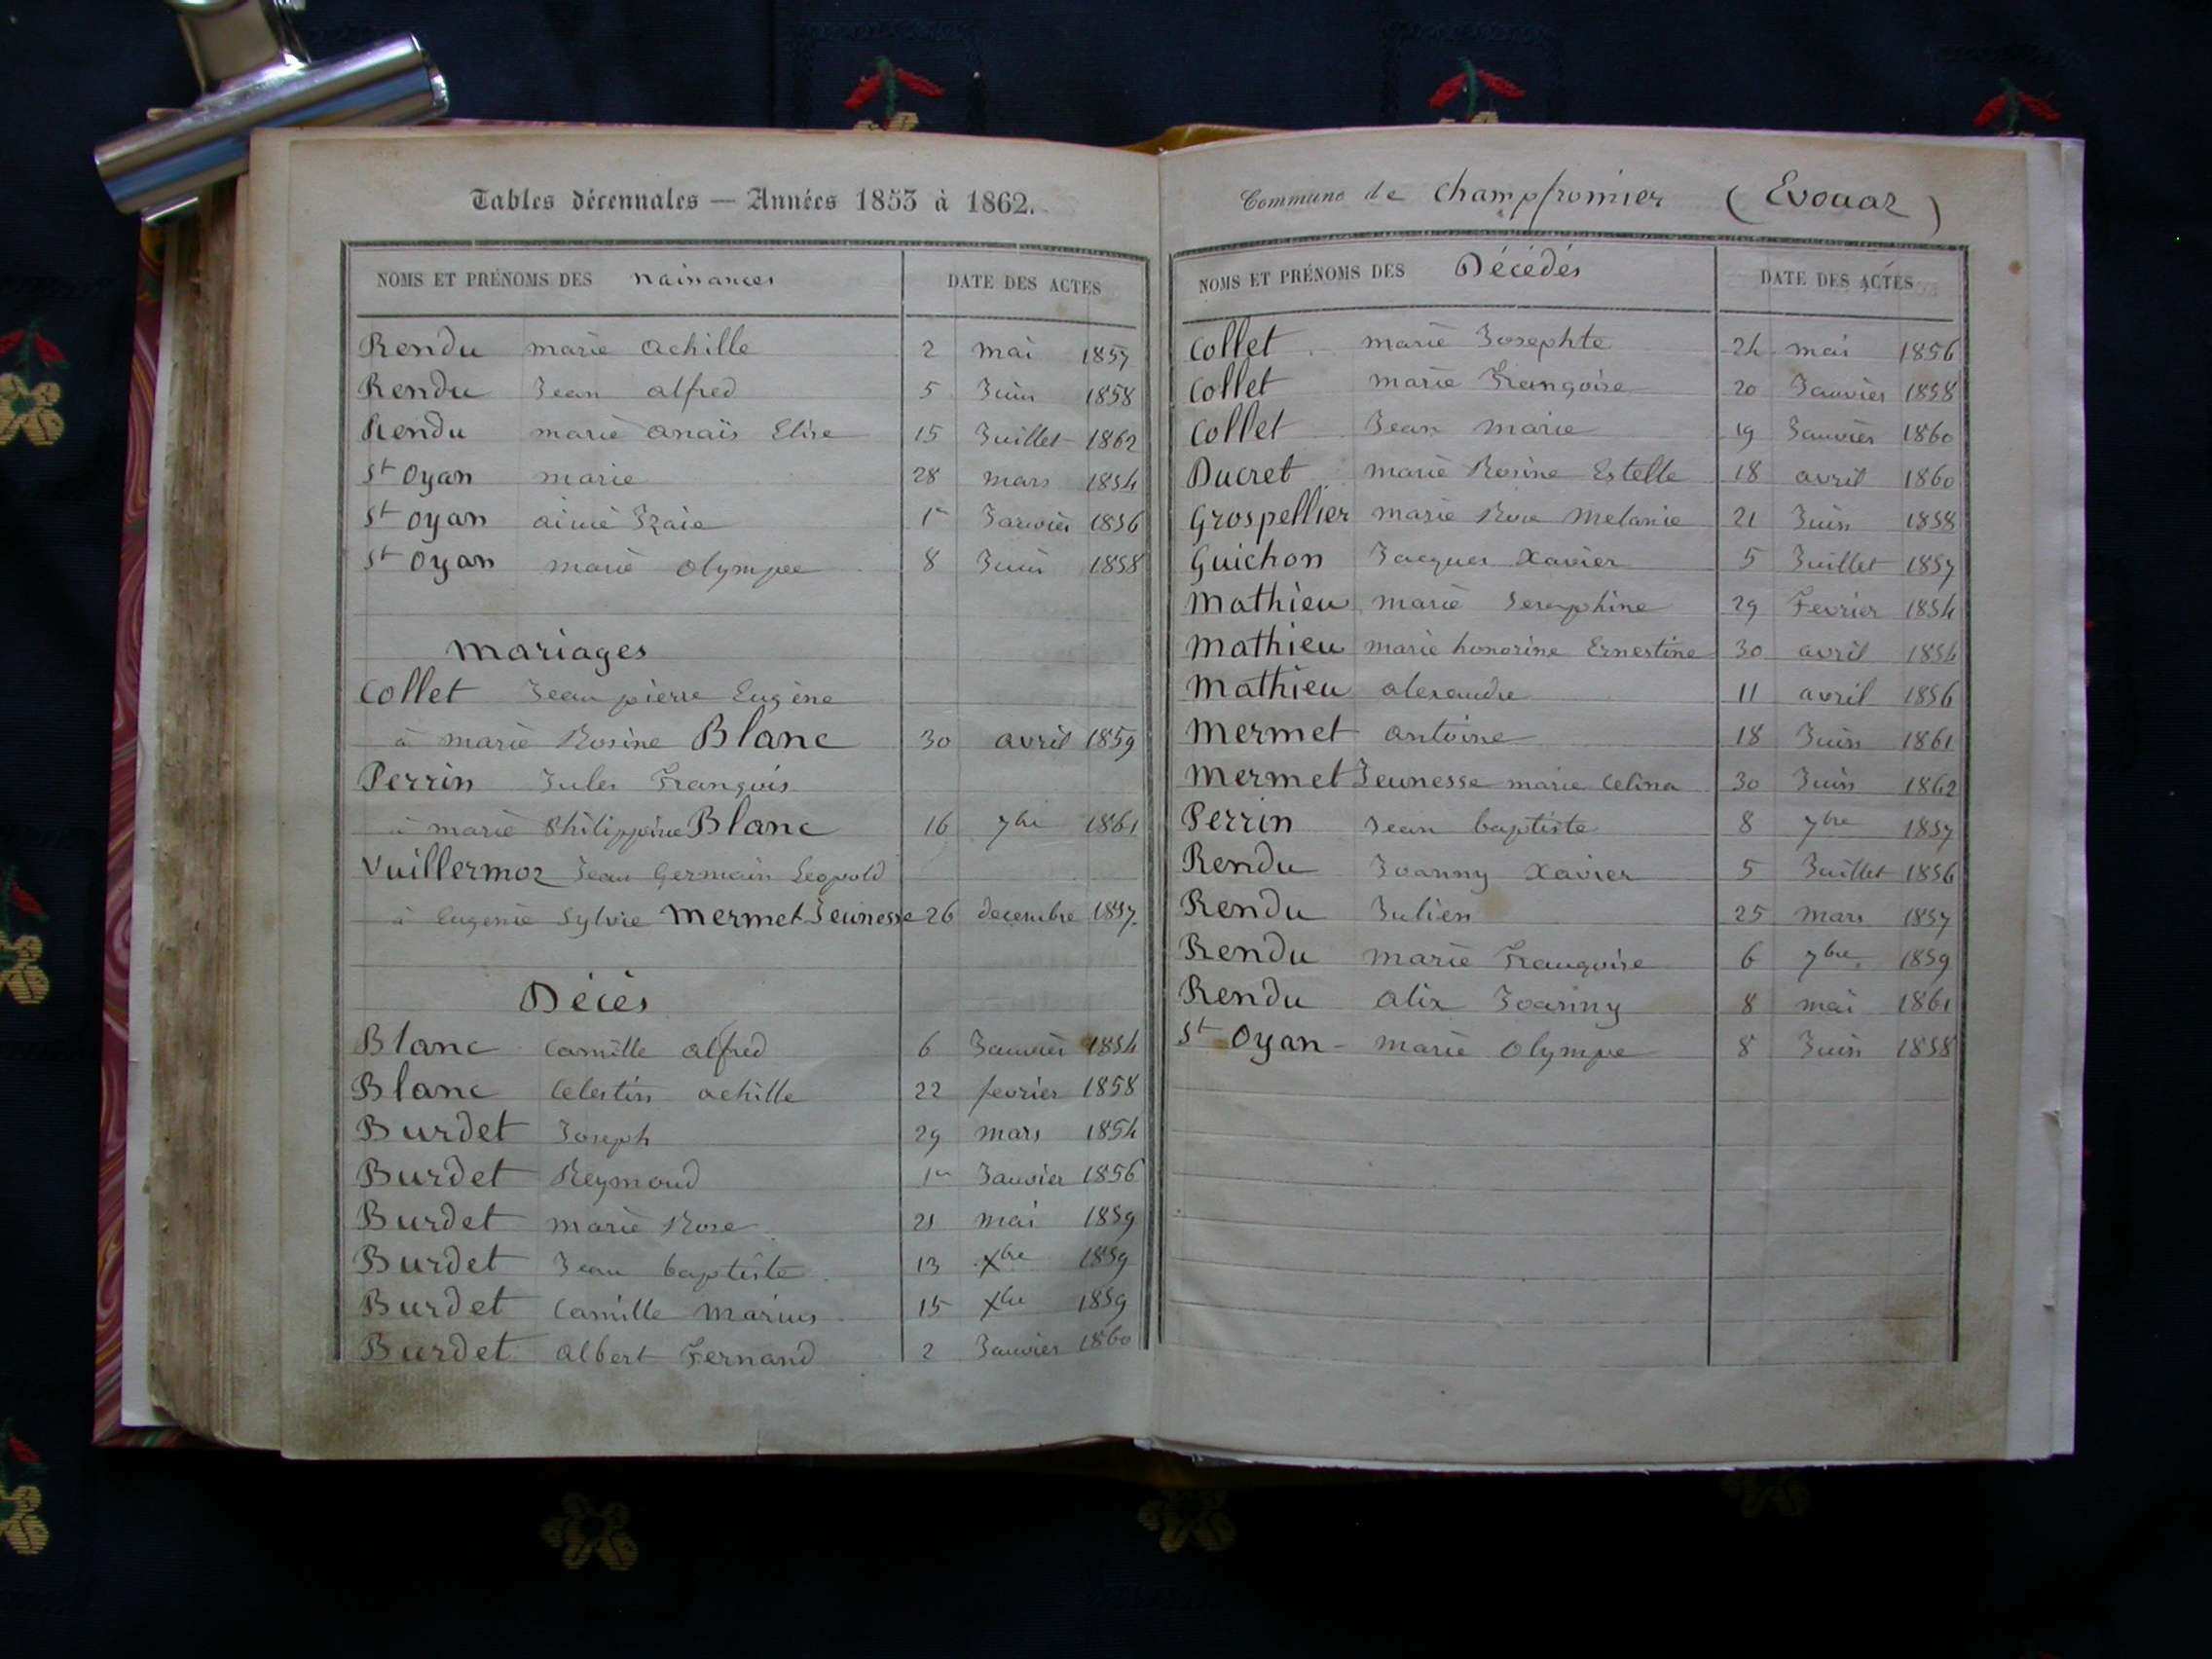 Tables décennales — Années 1853 à 1862.
NOMS ET PRÉNOMS DES naissances DATE DES ACTES
Rendu marie achille 2 mai 1857
Rendu Jean alfred 5 Juin 1858
Rendu marie anaïs Elise 15 Juillet 1862
St Oyan marie 28 mars 1854
St Oyan aimé Izaie 1er Janvier 1856
St Oyan marie olympe 8 Juin 1858
Mariages
Collet Jean pierre Eugène
à marie Rosine Blanc 30 avril 1859
Perrin Jules François
à marie Philippine Blanc 16 7bre 1861
Vuillermoz Jean Germain Leopold
à Eugenie Sylvie Mermet Jeunesse 26 decembre 1857
Décès
Blanc Camille alfred 6 Janvier 1854
Blanc Celestin achille 22 fevrier 1858
Burdet Joseph 29 mars 1854
Burdet Reymond 1er Janvier 1856
Burdet marie Rose 21 mai 1859
Burdet Jean baptiste 13 Xbre 1859
Burdet Camille Marius 15 Xbre 1859
Burdet albert Fernand 2 Janvier 1860
Commune de Champfromier (Evouaz)
NOMS ET PRÉNOMS DES Décédés DATE DES ACTES
Collet marie Josephte 24 mai 1856
Collet marie Françoise 20 Janvier 1858
Collet Jean marie 19 Janvier 1860
Ducret marie Rosine Estelle 18 avril 1860
Grospellier marie Rose Melanie 21 Juin 1858
Guichon Jacques Xavier 5 Juillet 1857
Mathieu marie Seraphine 29 Fevrier 1854
Mathieu marie honorine Ernestine 30 avril 1854
Mathieu alexandre 11 avril 1856
Mermet antoine 18 Juin 1861
Mermet Jeunesse marie Celina 30 Juin 1862
Perrin Jean baptiste 8 7bre 1857
Rendu Joanny Xavier 5 Juillet 1856
Rendu Julien 25 mars 1857
Rendu marie Françoise 6 7bre 1859
Rendu alix Joanny 8 mai 1861
St Oyan marie Olympe 8 Juin 1858